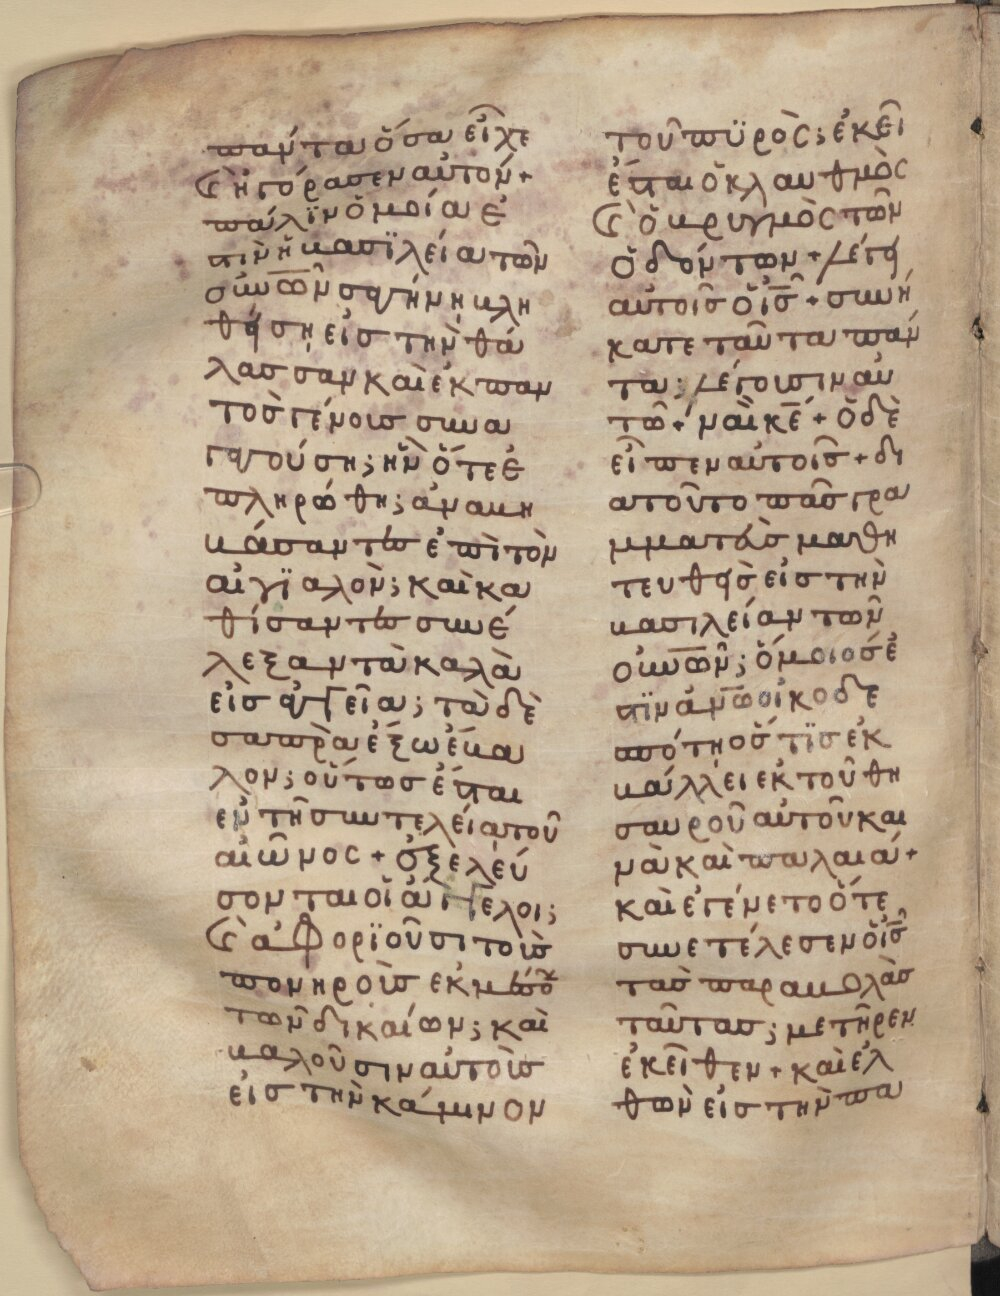 πάντα ὅσα εἶχε
καὶ ἠγόρασεν αὐτόν +
πάλϊν ὁμοία ἐ
στὶν ἡ βασϊλεία τῶν
οὐ͞ν͞ω͞ν σαγήνη βλη
θήση εἰς τὴν θά
λασσαν καὶ ἐκ παν
τὸς γένους συνα
γαγούση; ἣν ὅτε ἐ
πληρώθη; ἀναβη
βάσαντες ἐπὶ τὸν
αἰγϊαλὸν; καὶ κα
θίσαντες συνέ
λεξαν τὰ καλὰ
εἰς ἀγγεῖα; τὰ δὲ
σαπρὰ ἔξω ἔβα
λον; οὕτως ἔσται
ἐν τῆ συντελεία τοῦ
αἰῶνος + ἐξελεύ
σονται οἱ ἄγγελοι;
καὶ ἀφορϊοῦσι τοὺς
πονηροὺς ἐκ μέσου
τῶν δικαίων; καὶ
βαλοῦσιν αὐτοὺς
εἰς τὴν κάμινον
τοῦ πϋρὸς; ἐκεῖ
ἔσται ὁ κλαυθμὸς
καὶ ὁ βρυγμὸς τῶν
ὀδόντων + λέγει
αὐτοῖς ὁ ι͞ς + συνή
κατε ταῦτα πάν
τα; λέγουσιν αὐ
τῶ + ναὶ κ͞ε + ὁ δὲ
εἶπεν αὐτοῖς + δι
ατοῦτο πᾶς γρα
μματεὺς μαθη
τευθεὶς εἰς τὴν
βασιλείαν τῶν
οὐν͞ω͞ν; ὅμοιος ἐ
στϊν ἀ͞ν͞ω οἰκοδε
σπότη ὅστϊς ἐκ
βάλλει ἐκ τοῦ θη
σαυροῦ αὐτοῦ και
νὰ καὶ παλαιά +
καὶ ἐγένετο ὅτε
συνετέλεσεν ὁ ι͞ς
τὰς παραβολὰς
ταύτας; μετῆρεν
ἐκεῖθεν + καὶ ἐλ
θὼν εἰς τὴν πα